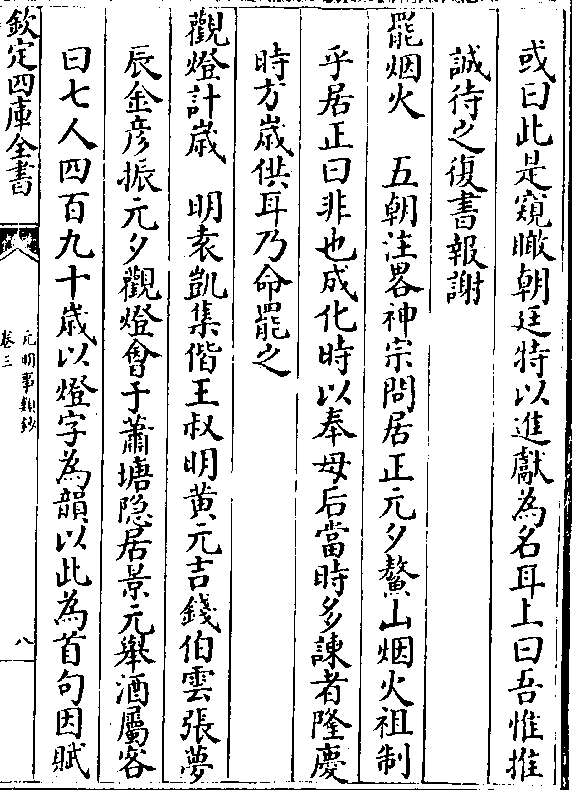 或曰此是窺瞰朝廷特以進獻為名耳上曰吾惟推
誠待之復書報謝
罷烟火　五朝注畧神宗問居正元夕鰲山烟火祖制
乎居正曰非也成化時以奉母后當時多諫者隆慶
時方嵗供耳乃命罷之
觀燈計嵗　明袁凱集偕王叔明黄元吉錢伯雲張夢
辰金彦振元夕觀燈會于蕭塘隠居景元舉酒屬客
曰七人四百九十嵗以燈字為韻以此為首句因賦
欽定四庫全書
元明事類鈔
卷三
八